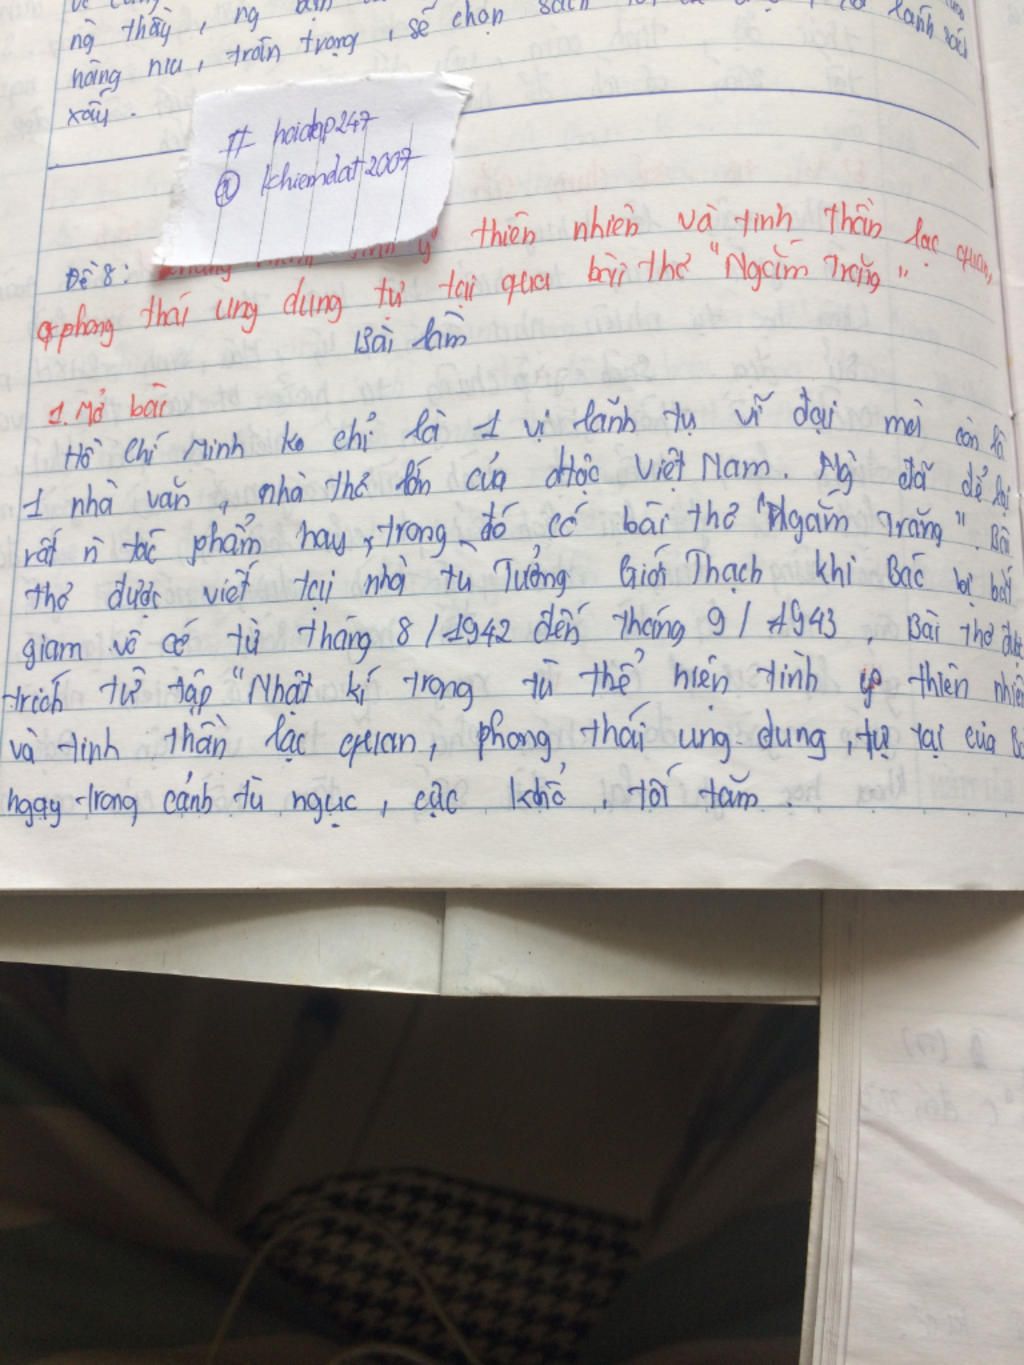 ng thầy, ng bạn
nâng niu, trân trọng, sẽ chọn sách lánh sách
xấu.
# hoidap247
@ khiemdat2007
Đề 8: thiên nhiên và tinh thần lạc quan,
phong thái ung dung tự tại qua bài thơ "Ngắm Trăng"
Bài làm
1. Mở bài
Hồ Chí Minh ko chỉ là 1 vị lãnh tụ vĩ đại mà còn là
1 nhà văn, nhà thơ lớn của dtộc Việt Nam. Ng đã để lại
rất n tác phẩm hay, trong đó có bài thơ "Ngắm Trăng". Bài
thơ được viết tại nhà tù Tưởng Giới Thạch khi Bác bị bắt
giam vô cớ từ tháng 8/1942 đến tháng 9/1943. Bài thơ được
trích từ tập "Nhật kí trong tù thể hiện tình yo thiên nhiên
và tinh thần lạc quan, phong thái ung dung, tự tại của
ngay trong cảnh tù ngục, cực khổ, tối tăm.